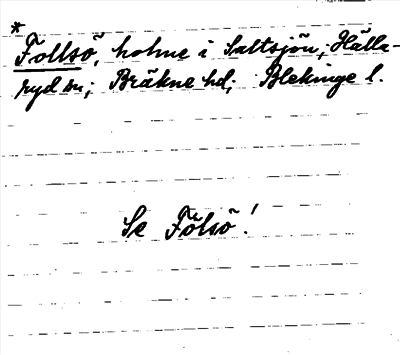 *
Follsö, holme i Saltsjön; Hälla-
ryd sn; Bräkne hd; Blekinge l.
Se Fölsö!